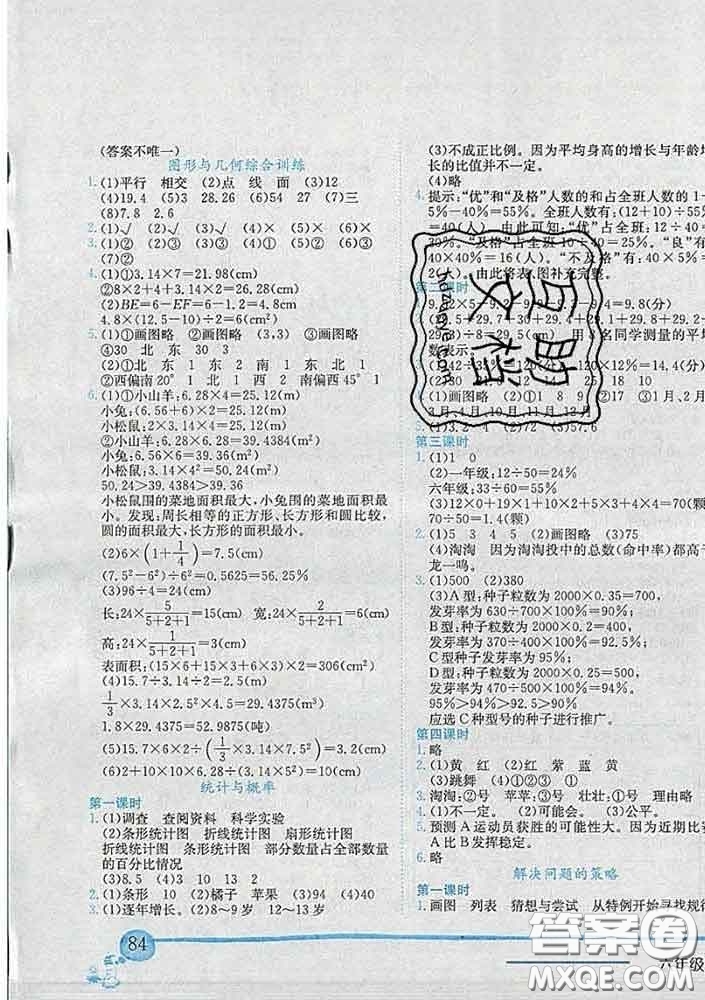 (答案不唯一)
图形与几何综合训练
1.(1)平行 相交 (2)点 线 面 (3)12
(4)19.4 (5)3 28.26 (6)54 27 (7)三
(8)7.8 2.6
2.(1)√ (2)√ (3)√ (4)× (5)× (6)×
3.(1)② (2)③ (3)③ (4)① (5)① (6)③
(7)②
4.(1)①3.14×7=21.98(cm)
②8×2+4+2×3.14=26.28(cm)
(2)BE=6-EF=6-1.2=4.8cm
4.8×(12.5-10)÷2=6(cm²)
5.(1)①画图略 ②画图略 (3,3) ③画图略
④30 北 东 30 3
(2)①北 东 1 东 2 南 1 东 1 北
②西偏南20° 1 北 1 西 2 南偏西45° 1
6.(1)①小山羊:6.28×4=25.12(m)
小兔:(6.56+6)×2=25.12(m)
小松鼠:2×3.14×4=25.12(m)
②小山羊:6.28×6.28=39.4384(m²)
小兔:6.56×6=39.36(m²)
小松鼠:3.14×4²=50.24(m²)
50.24>39.4384>39.36
小松鼠围的菜地面积最大,小兔围的菜地面积最
小。发现:周长相等的正方形、长方形和圆比较,
圆的面积最大,长方形的面积最小。
(2)6×(1+1/4)=7.5(cm)
(7.5²-6²)÷6²=0.5625=56.25%
(3)96÷4=24(cm)
长:24×5/(5+2+1)=15(cm) 宽:24×2/(5+2+1)=6(cm)
高:24×1/(5+2+1)=3(cm)
表面积:(15×6+15×3+6×3)×2=306(cm²)
(4)15.7÷3.14÷2=2.5(m)
1/3×3.14×2.5²×4.5=29.4375(m³)
1.8×29.4375=52.9875(吨)
(5)15.7×6×2÷(1/3×3.14×7.5²)=3.2(cm)
(6)2×10×10×6.28÷(3.14×2²)=100(cm)
统计与概率
第一课时
1.(1)调查 查阅资料 科学实验
(2)条形统计图 折线统计图 扇形统计图
折线统计图 条形统计图 部分数量占全部数量
的百分比情况
(3)8.5 (4)3 10 13 2
2.(1)条形 10 (2)橘子 苹果 (3)94 (4)40
3.(1)逐年增长。(2)8~9岁 12~13岁
84
(3)不成正比例。因为平均身高的增长与年龄增
长的比值并不一定。
(4)略
4.提示:“优”和“及格”人数的和占全班人数的1-
5%-40%=55%。全班人数有:(12+10)÷55%
=40(人)。由此可知:“优”占全班人数的
30%。“及格”占全班人数的25%。“良”有
40×40%=16(人)。“不及格”有:40×5%
=2(人)。由此将表、图补充完整。
第二课时
数表示。
第三课时
1.(1)1 0
(2)一年级:12÷50=24%
六年级:33÷60=55%
(3)12×0+19×1+10×2+5×3+4×4=70(颗)
70÷50=1.4(颗)
2.(1)5 3 4 5 (2)画图略
(4)淘淘 因为淘淘投中的总数(命中率)都高于
龙一鸣。
3.(1)500 (2)380
(3)A型:种子粒数为2000×0.35=700,
发芽率为630÷700×100%=90%;
B型:种子粒数为2000×0.2=400,
发芽率为370÷400×100%=92.5%;
C型种子发芽率为95%;
D型:种子粒数为2000×0.25=500,
发芽率为470÷500×100%=94%。
95%>94%>92.5%>90%
应选C种型号的种子进行推广。
第四课时
1.略
2.(1)黄 红 (2)红 紫 蓝 黄
(3)跳舞 (4)①①③ ①
3.淘淘:②号 苹苹:③号 壮壮:①号 理由略
4.(1)不一定。 (2)可能会。 (3)公平。
5.预测A运动员获胜的可能性大。因为近期比赛
A比B发挥稳定。
6.略
解决问题的策略
第一课时
1.画图 列表 猜想与尝试 从特例开始寻找规律
六年级
答案圈
MXQE.COM